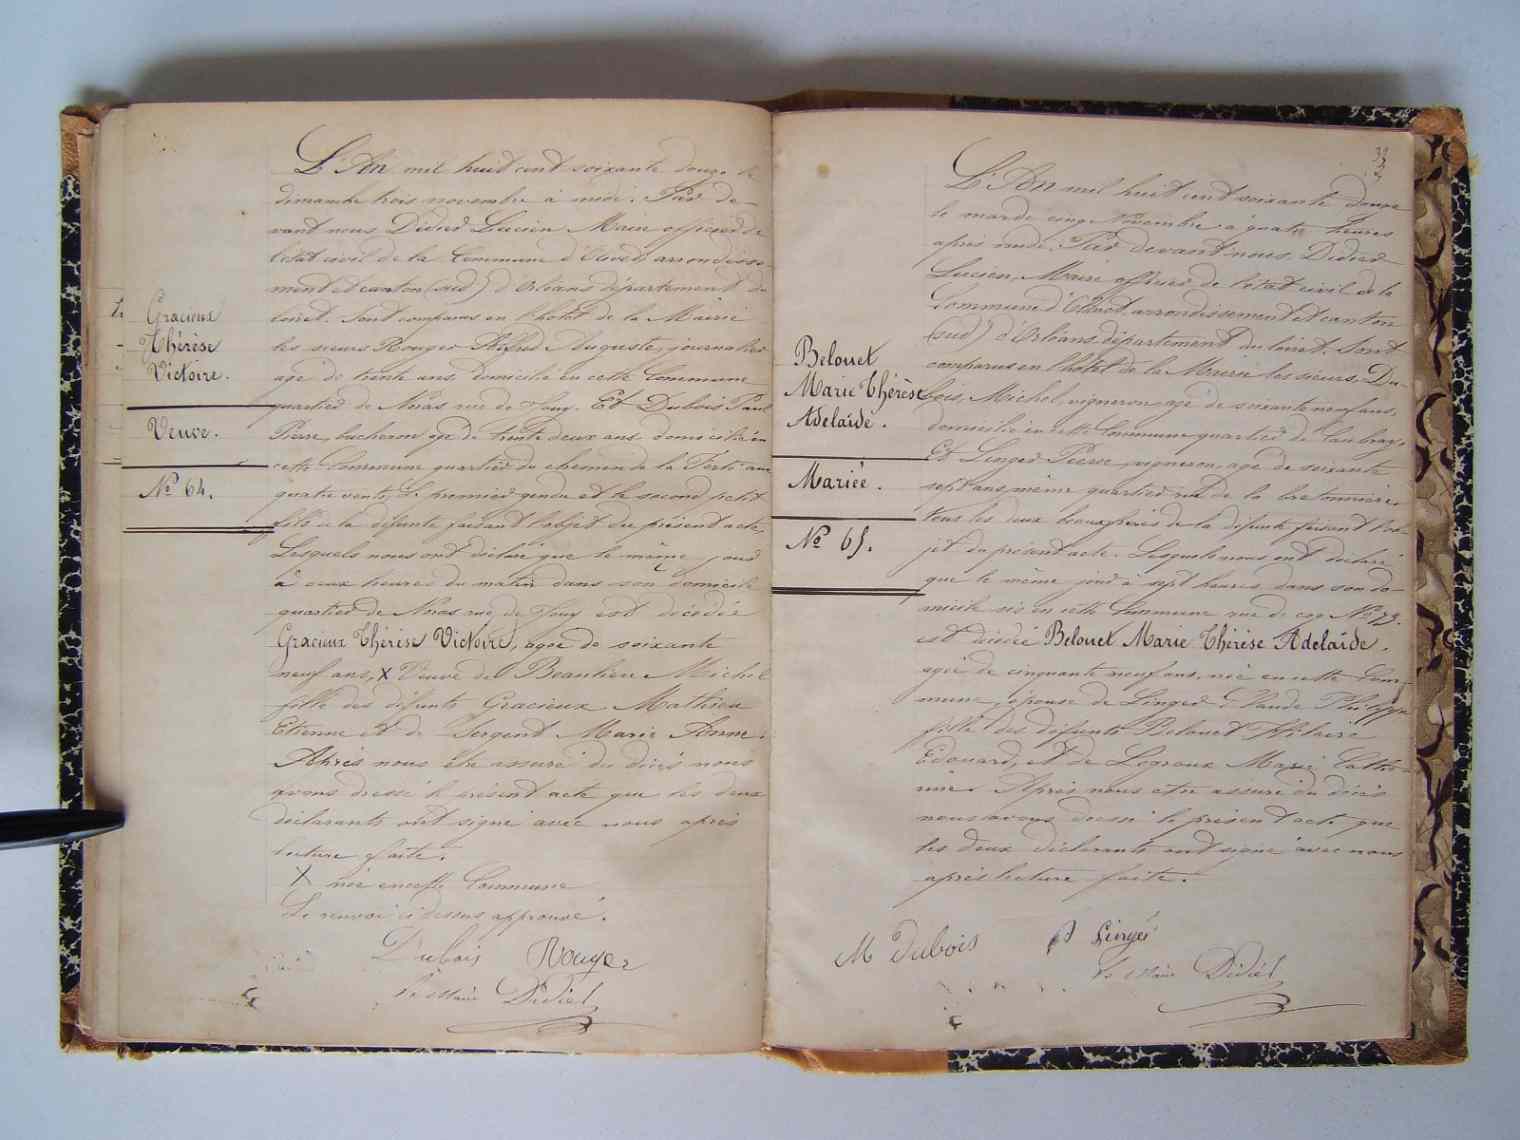 Gracieux
Thérèse
Victoire.
Veuve.
Nº 64.
L'An mil huit cent soixante douze le
dimanche trois novembre à midi. Par de-
vant nous Didier Lucien Maire officier de
l'état civil de la Commune d'Olivet arrondisse-
ment et canton (sud) d'Orléans département du
Loiret. Sont comparus en l'hotel de la Mairie
les sieurs Rouger Alfred Auguste, journalier
agé de trente ans domicilié en cette Commune
quartier de Néras rue de Houy. Et Dubois Paul
Pierre, bucheron agé de trente deux ans domicilié en
cette Commune quartier du chemin de la Ferté aux
quatre vents, Le premier gendre et le second petit
fils de la défunte faisant l'objet du présent acte,
Lesquels nous ont déclaré que le même jour
à onze heures du matin dans son domicile
quartier de Néras rue de Houy est décédée
Gracieux Thérèse Victoire, agée de soixante
neuf ans, X Veuve de Beaulieu Michel
fille des défunts Gracieux Mathieu
Etienne et de Sergent Marie Anne.
Après nous être assuré du décès nous
avons dressé le présent acte que les deux
déclarants ont signé avec nous après
lecture faite.
X née en cette Commune
Le renvoi ci dessus approuvé.
Dubois Rouger
Le Maire Didier
Belouet
Marie Thérèse
Adelaïde.
Mariée.
Nº 65.
L'An mil huit cent soixante douze
le mardi cinq Novembre à quatre heures
après midi. Par devant nous Didier
Lucien, Maire officier de l'état civil de la
Commune d'Olivet arrondissement et canton
(sud) d'Orléans département du Loiret. Sont
comparus en l'hotel de la Mairie les sieurs Du-
bois, Michel vigneron agé de soixante neuf ans,
domicilié en cette Commune quartier de Caubray.
Et Linger Pierre, vigneron, agé de soixante
sept ans même quartier rue de la bretonnière.
tous les deux beaux frères de la défunte faisant l'ob-
jet du présent acte. Lesquels nous ont déclaré
que le même jour à sept heures dans son do-
micile sis en cette Commune rue de Nº 173.
est décédée Belouet Marie Thérèse Adelaïde.
agée de cinquante neuf ans, née en cette Com-
mune, épouse de Linger Claude Philippe
fille des défunts Belouet Hilaire
Edouard, et de Legroux Marie Cathe-
rine. Après nous etre assuré du décès
nous avons dressé le présent acte que
les deux déclarants ont signé avec nous
après lecture faite.
M Dubois P Linger
Le Maire Didier